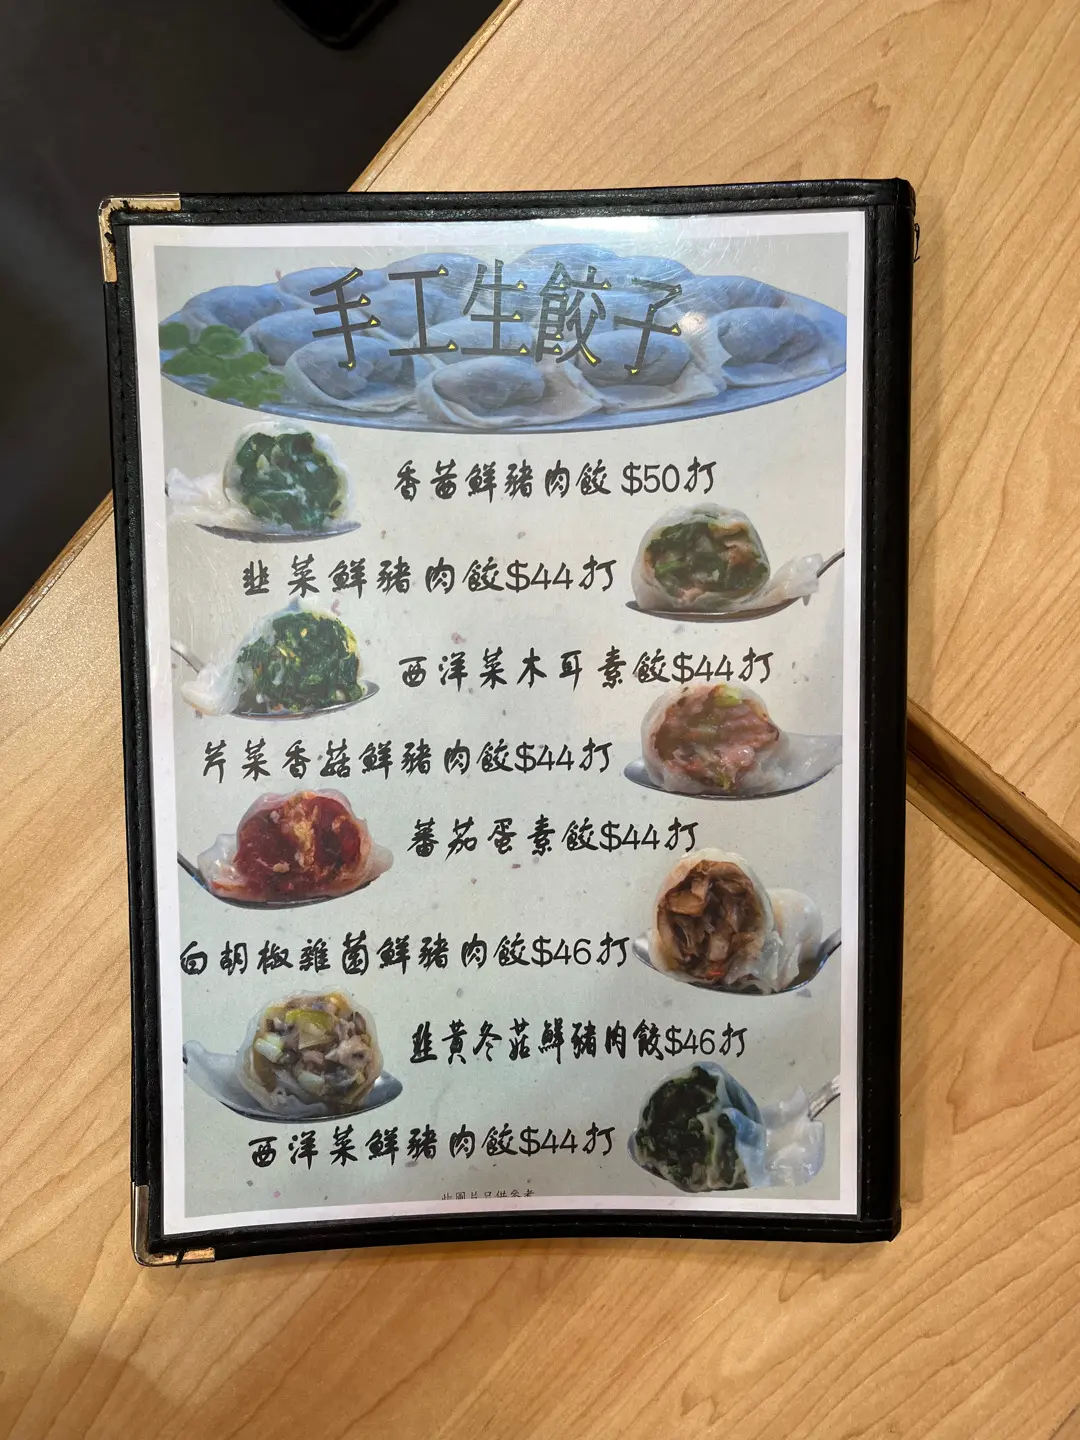 手工生餃子
香茜鮮豬肉餃 $50打
韭菜鮮豬肉餃$44打
西洋菜木耳素餃$44打
芹菜香菇鮮豬肉餃$44打
蕃茄蛋素餃$44打
白胡椒雜菌鮮豬肉餃$46打
韭黃冬菇鮮豬肉餃$46打
西洋菜鮮豬肉餃$44打
此圖片只供參考